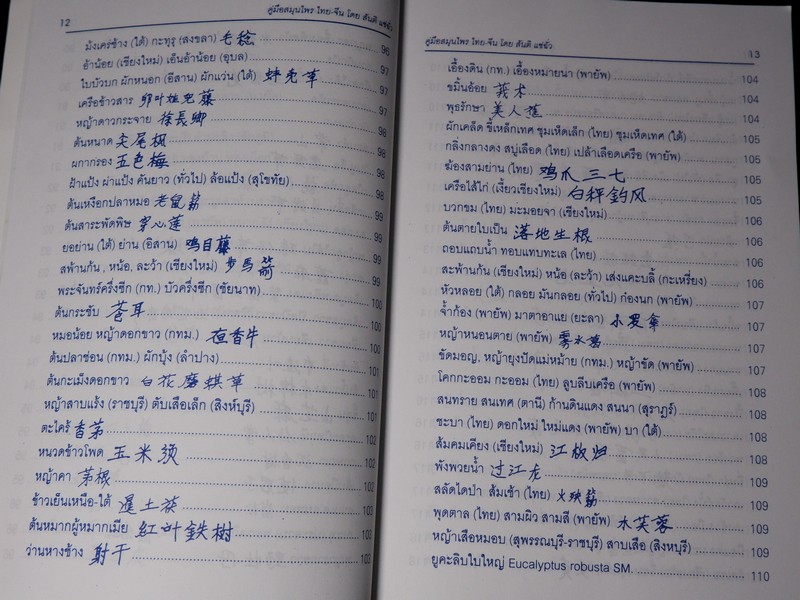 12 คู่มือสมุนไพร ไทย-จีน โดย สันติ แซ่จิ๋ว
ม้งเคร่ช้าง (ใต้) กะทุรุ (สงขลา) 毛稔 96
อ้าน้อย (เชียงใหม่) เอ็นอ้าน้อย (อุบล) 97
ใบบัวบก ผักหนอก (อีสาน) ผักแว่น (ใต้) 蚌壳草 97
เครือข้าวสาร 卵叶娃儿藤 97
หญ้าดาวกระจาย 徐長卿 98
ต้นหนาด 尖尾枫 98
ผกากรอง 五色梅 98
ฝ้าแป้ง ฝาแป้ง คันยาว (ทั่วไป) ล้อแป้ง (สุโขทัย) 98
ต้นเหงือกปลาหมอ 老鼠簕 99
ต้นสาระพัดพิษ 穿心莲 99
ยอย่าน (ใต้) ย่าน (อีสาน) 鸡目藤 99
สพ้านกัน , หน้อ, ละว้า (เชียงใหม่) 步馬箭 99
พระจันทร์ครึ่งซีก (กท.) บัวครึ่งซีก (ชัยนาท) 100
ต้นกระชับ 苍耳 100
หมอน้อย หญ้าดอกขาว (กทม.) 夜香牛 100
ต้นปลาช่อน (กทม.) ผักบุ้ง (ลำปาง) 101
ต้นกะเม็งดอกขาว 白花磨蜞草 101
หญ้าสาบแร้ง (ราชบุรี) ตับเสือเล็ก (สิงห์บุรี) 101
ตะไคร้ 香茅 102
หนวดข้าวโพด 玉米须 102
หญ้าคา 茅根 102
ข้าวเย็นเหนือ-ใต้ 暹土茯 103
ต้นหมากผู้หมากเมีย 红叶鉄樹 103
ว่านหางช้าง 射干 103
คู่มือสมุนไพร ไทย-จีน โดย สันติ แซ่จิ๋ว 13
เอื้องดิน (กท.) เอื้องหมายนา (พายัพ) 104
ขมิ้นอ้อย 莪术 104
พุธรักษา 美人蕉 104
ผักเค็ด ขี้เหล็กเทศ ชุมเห็ดเล็ก (ไทย) ชุมเห็ดเทศ (ใต้) 105
กลิ่งกลางดง สบู่เลือด (ไทย) เปล้าเลือดเครือ (พายัพ) 105
ฆ้องสามย่าน (ไทย) 鸡爪三七 105
เครือไส้ไก่ (เงี้ยวเชียงใหม่) 白秤鈎风 105
บวกขม (ไทย) มะมอยจา (เชียงใหม่) 106
ต้นตายใบเป็น 落地生根 106
ถอบแถบน้ำ ทอบแทบทะเล (ไทย) 106
สะพ้านกัน (เชียงใหม่) หน้อ (ละว้า) เส่งแคะบลี้ (กะเหรี่ยง) 106
หัวหลอย (ใต้) กลอย มันกลอย (ทั่วไป) ก๋องนก (พายัพ) 107
จ้ำก้อง (พายัพ) มาตาอาแย (ยะลา) 小罗伞 107
หญ้าหนอนตาย (พายัพ) 雾水葛 107
ขัดมอญ, หญ้ายุงปัดแม่หม้าย (กทม.) หญ้าขัด (พายัพ) 108
โคกกะออม กะออม (ไทย) ลูบลีบเครือ (พายัพ) 108
สนทราย สนเทศ (ตานี) ก้านดินแดง สนนา (สุราฎร์) 108
ชะบา (ไทย) ดอกใหม่ ใหม่แดง (พายัพ) บา (ใต้) 108
ส้มคมเคียง (เชียงใหม่) 江板归 108
พังพวยน้ำ 过江龙 109
สลัดไดป่า ส้มเช้า (ไทย) 火殃簕 109
พุดตาล (ไทย) สามผิว สามสี (พายัพ) 木芙蓉 109
หญ้าเสือหมอบ (สุพรรณบุรี-ราชบุรี) สาบเสือ (สิงหบุรี) 109
ยูคะลิบใบใหญ่ Eucalyptus robusta SM. 110